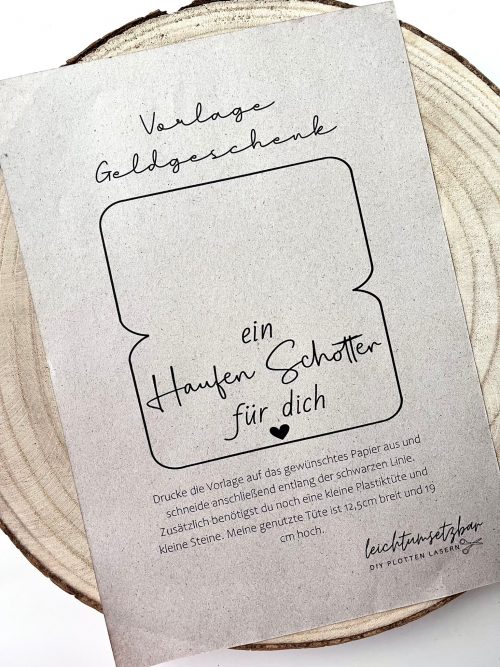 Vorlage
Geldgeschenk
ein
Haufen Schotter
für dich
Drucke die Vorlage auf das gewünschtes Papier aus und
schneide anschließend entlang der schwarzen Linie.
Zusätzlich benötigst du noch eine kleine Plastiktüte und
kleine Steine. Meine genutzte Tüte ist 12,5cm breit und 19
cm hoch.
leichtumsetzbar
DIY PLOTTEN LASERN